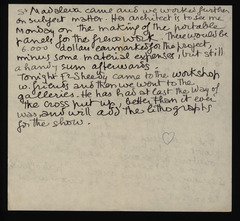 Sr Madeleva came and we worked further
on subject matter. Her architect is to see me
Monday on the making of the portable
panels for the fresco work. There would be
6.000 dollar earmarked for the project,
minus some material expense, but still
a handy sum afterwards.
Tonight Fr Sheedy came to the workshop
w. friends and then we went to the
galleries. He has had at last the Way of
the Cross put up, better than it ever
was, and will add the lithographs
for the show.